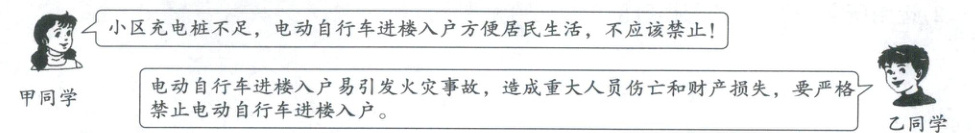 小区充电桩不足，电动自行车进楼入户方便居民生活，不应该禁止！
甲同学
电动自行车进楼入户易引发火灾事故，造成重大人员伤亡和财产损失，要严格
禁止电动自行车进楼入户。
乙同学